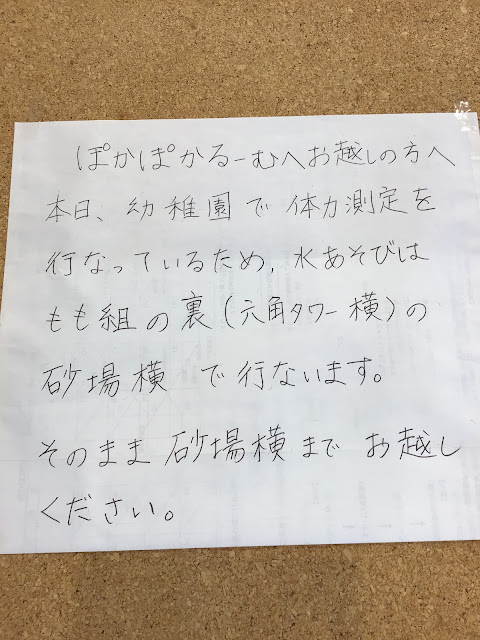 ぽかぽかるーむへお越しの方へ
本日、幼稚園で体力測定を
行なっているため、水あそびは
もも組の裏(六角タワー横)の
砂場横で行ないます。
そのまま砂場横までお越し
ください。